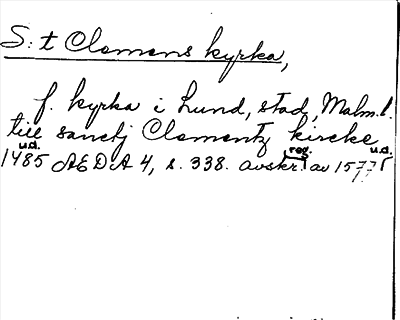 S:t Clemens kyrka,
f. kyrka i Lund, stad, Malm.l.
till sanctj Clementz kircke
u.d. 1485 ÆDA 4, s. 338. avskr. reg. av 1577 u.d.